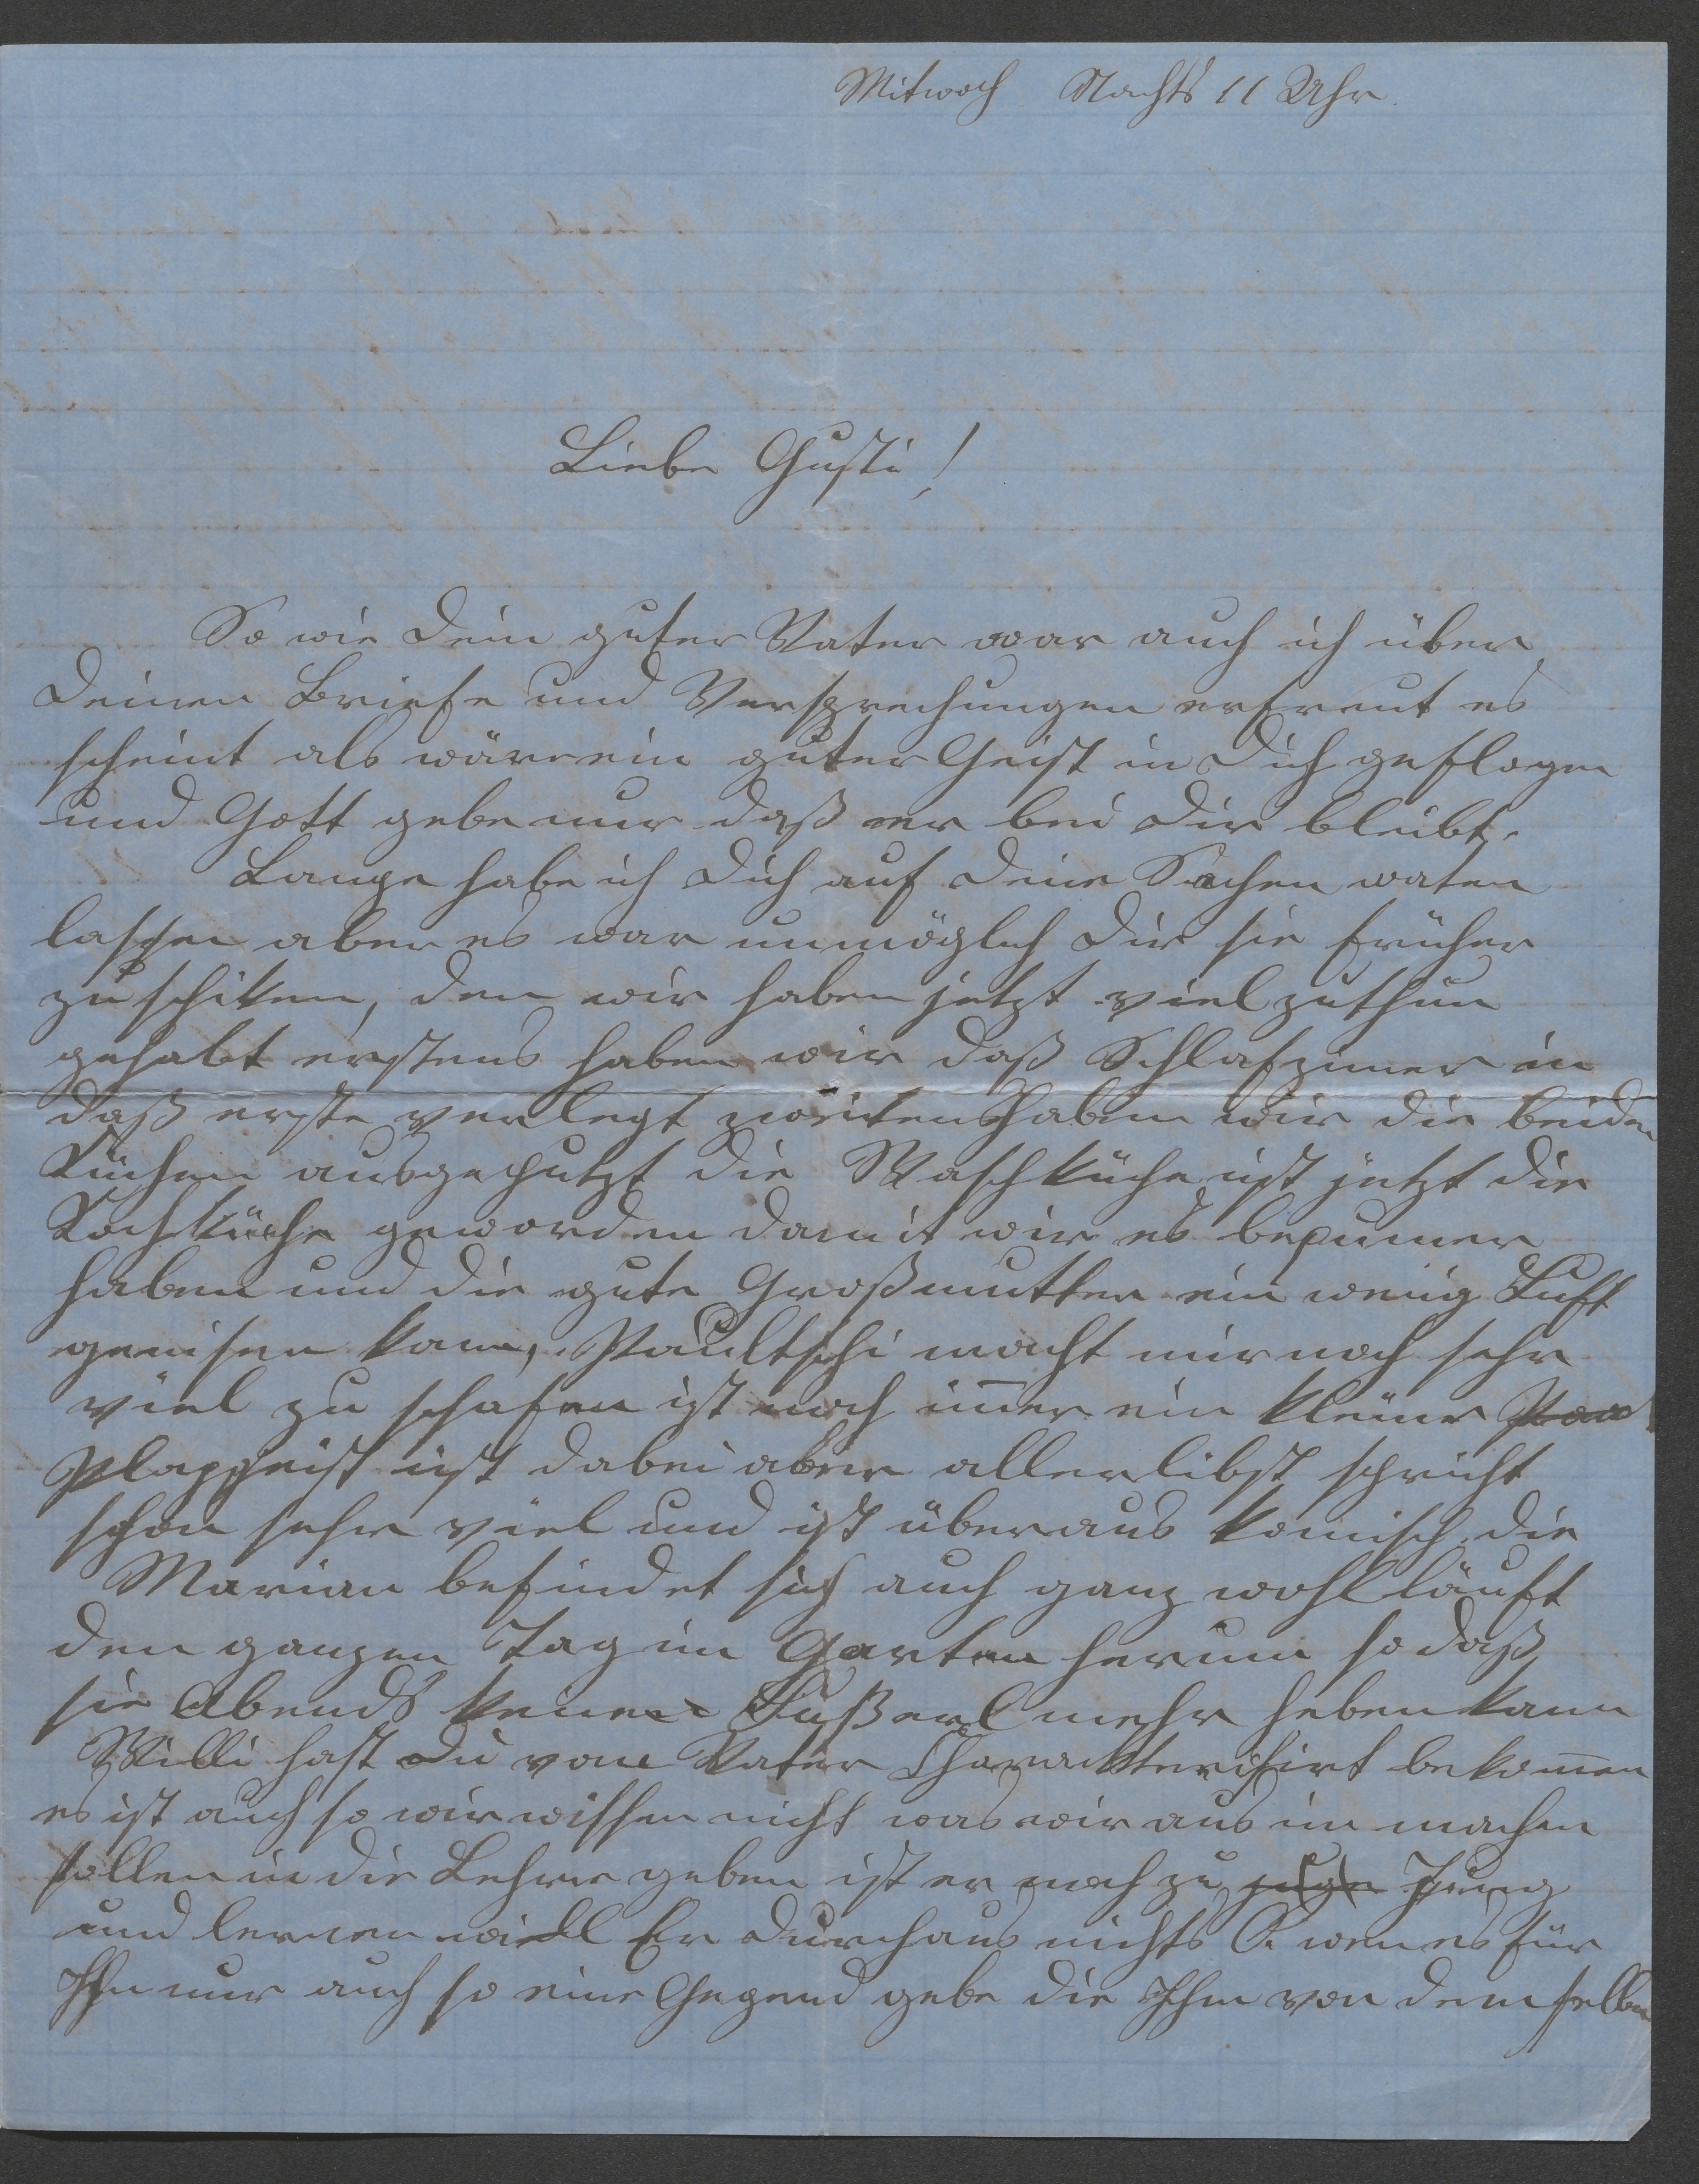 Mitwoch Nachts 11 Uhr.
Liebe Gusti!
So wie Dein guter Vater war auch ich über
Deinen Briefe und Versprechungen erfreut es
scheint als wäre ein guter Geist in Dich geflogen
und Gott gebe nur daß er bei Dir bleibt.
Lange habe ich Dich auf Deine Sachen waten
lassen aber es war unmöglich Dir sie früher
zu schiken, den wir haben jetzt viel zuthun
gehabt erstens haben wir daß Schlafzimer in
daß erste verlegt zweitens haben wir die beiden
Küchen ausgeputzt die Waschküche ist jetzt die
Kochküche geworden damit wir es bequmer
haben und die gute Großmutter ein wenig Luft
genisen kann, Paultschi macht mir noch sehr
viel zu schafen ist noch im̄er ein kleiner
Plaggeist ist dabei aber allerlibst spricht
schon sehr viel und ist überaus komisch, die
Marian befindet sich auch ganz wohl läuft
den ganzen Tag im Garten herum so daß
sie Abends keine Fußerl mehr heben kann
Willi hast Du vom Vater Charackterisirt bekom̄en
es ist auch so wir wissen nicht was wir aus im machen
sollen in die Lehre geben ist er noch zu Jung
und lernen will Er durchaus nichts O. wen es für
Ihn nur auch so eine Gegend gebe die Ihm von demselben